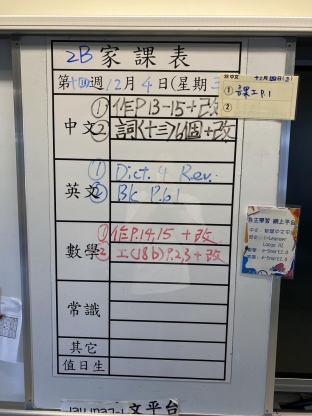 2B 家課表
第十四週 12月4日(星期三)
中文
① 作P.13-15+改
② 詞(十三)6個+改
英文
① Dict. 9 Rev.
② Bk P.61
數學
① 作P.14,15 +改
② 工(18b)P.2,3+改
常識
其它
值日生
中文
① 課工P.1
②
自主學習 網上平台
文平台